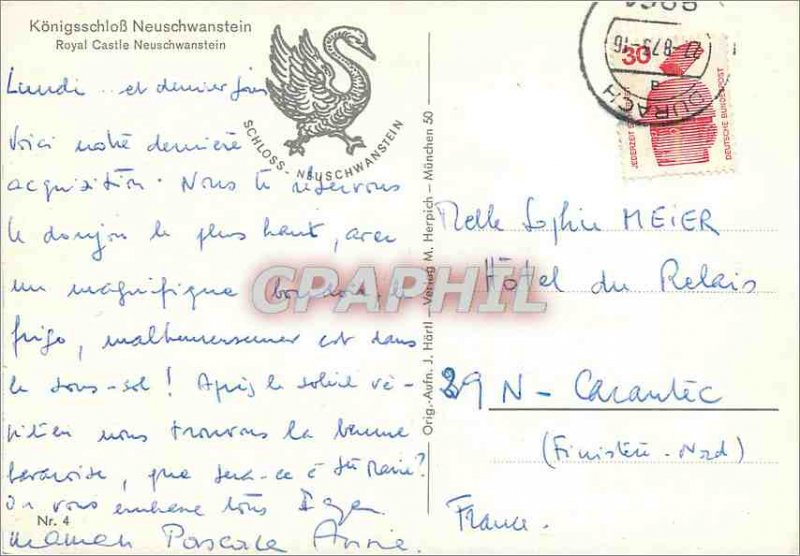 Königsschloß Neuschwanstein
Royal Castle Neuschwanstein
SCHLOSS - NEUSCHWANSTEIN
Lundi .. et dernier jour
Voici notre dernière
acquisition. Nous te réservons
le donjon le plus haut, avec
un magnifique boudoir. le
frigo, malheureusement est dans
le sous-sol ! Après le soleil vé-
nitien nous trouvons la brume
bavaroise, que sera-ce à Ste Marie?
On vous embrasse tous
maman Pascale Annie.
Nr. 4
Orig.-Aufn. J. Härtl – Verlag M. Herpich – München 50
DURACH
30
JEDERZEIT
DEUTSCHE BUNDESPOST
Melle Sophie MEIER
Hôtel du Relais
29 N - Carantec
(Finistère-Nord)
France.
CPAPHIL